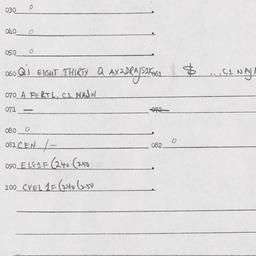 030 0
040 0
050 0
060 Q1 EIGHT THIRTY Q 061 $ ... C1 NAJ
070 A FERTL, C1 NAJN
071 — 072
080 0
081 CEN /- 082 0
090 ELS1F (240 (250
100 CVEL 1F (240 (250